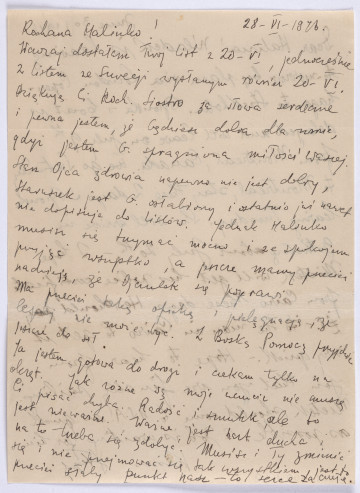 28-VI-1976.
Kochana Halinko!
Wczoraj dostałam Twój list z 20-VI, jednocześnie
z listem ze Szwecji wysłanym również 20-VI.
Dziękuję Ci Koch. Siostro za słowa serdeczne
i pewna jestem, że będziesz dobra dla mnie,
gdyż jestem b. spragniona miłości Waszej.
Stan Ojca zdrowia napewno nie jest dobry,
Staruszek jest b. osłabiony i ostatnio już nawet
nie dopisuje do listów. Jednak Halinko
musisz się trzymać mocno i ze spokojem
przyjąć wszystko, a jeszcze mamy przecież
nadzieję, że Ojculek się poprawi.
Ma przecież taką opiekę i pielęgnację, że
lepszej nie może być. Z Boską Pomocą przyjdzie
jeszcze do sił.
Ja jestem gotowa do drogi i czekam tylko na
okręt. Jak różne są moje uczucia nie muszę
Ci pisać chyba. Radość i smutek ale to
jest nieważne. Ważne jest hart ducha i
na to trzeba się zdobyć. Musisz i Ty zmienić
się i nie przejmować się tak wszystkim, jest to
przecież stały punkt nasz – to serce za